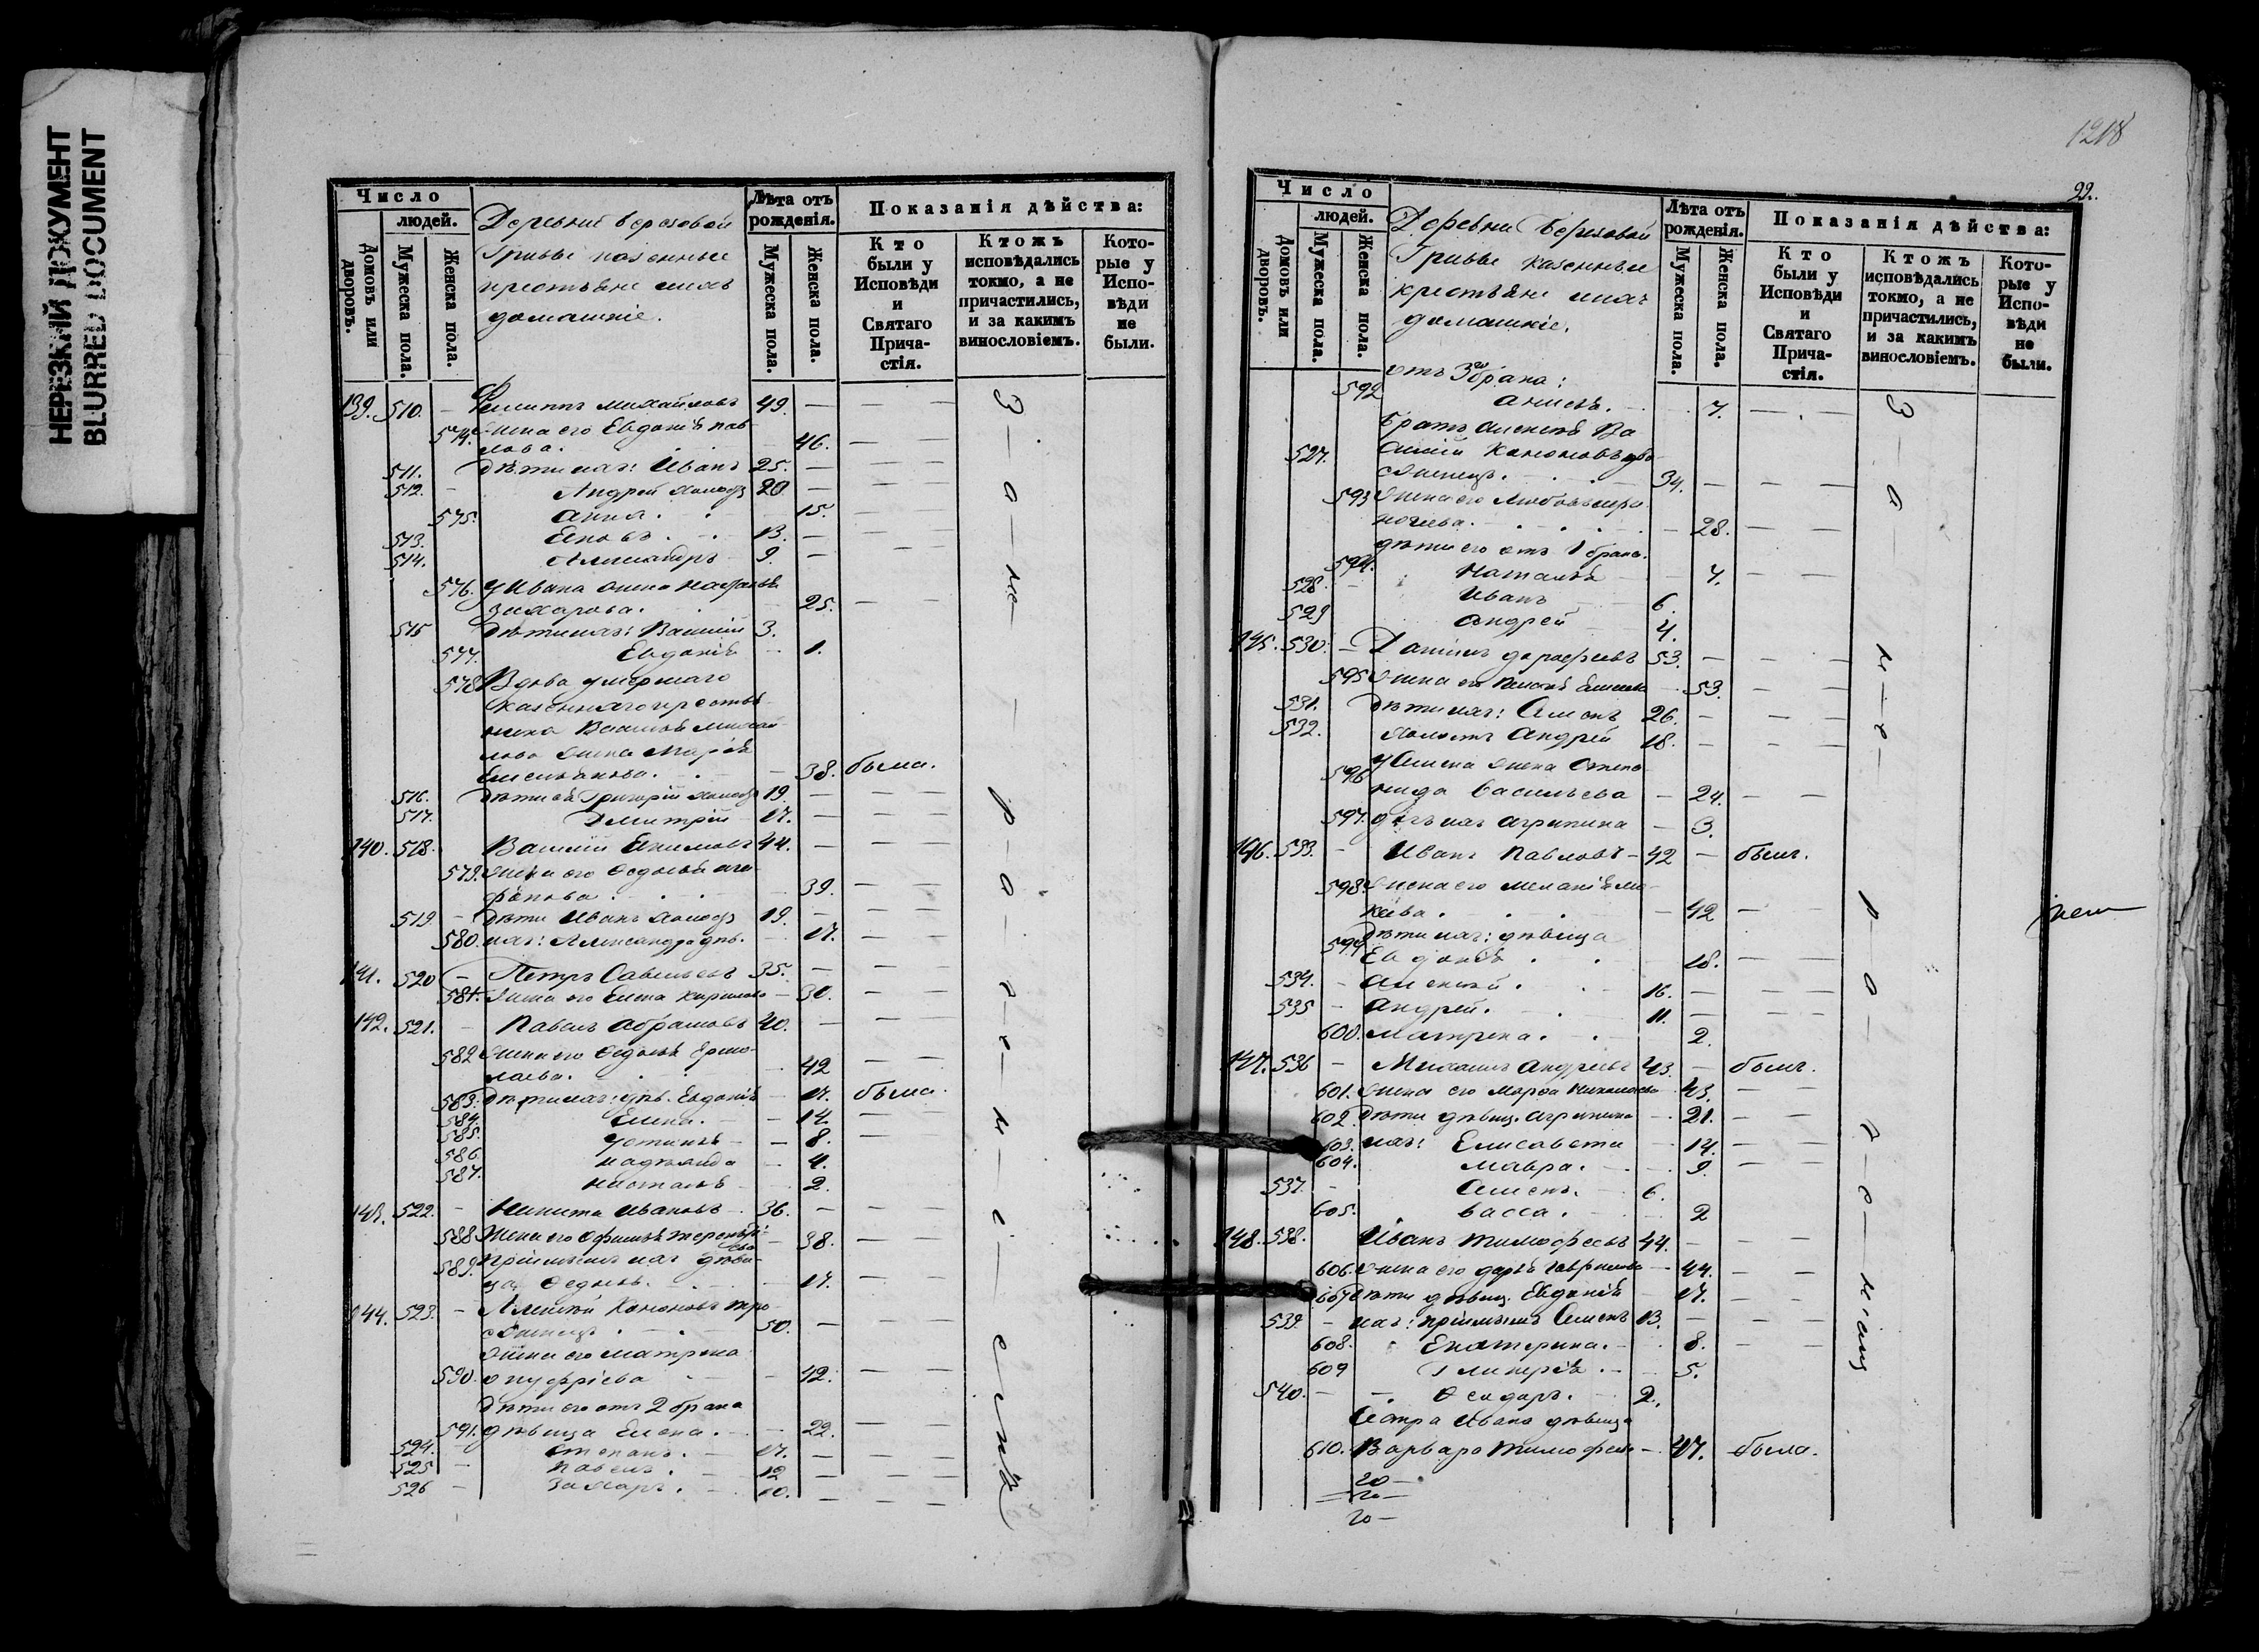 НЕРЕЗКИЙ ДОКУМЕНТ
BLURRED DOCUMENT
Число
людей.
Домовъ или дворовъ.
Мужеска пола.
Женска пола.
Деревни Березовой
Гривы казенные
крестьяне и ихъ
домашніе.
Лѣта отъ рожденія.
Мужеска пола.
Женска пола.
Показанія дѣйства:
Кто были у Исповѣди и Святаго Причастія.
Ктожъ исповѣдались токмо, а не причастились, и за какимъ винословіемъ.
Которые у Исповѣди не были.
139. 510. – Филиппъ Михайловъ 49. –
574. Жена его Евдокія Пав-
лова. 46.
511. Дѣти ихъ: Иванъ 25. –
512. Андрей холост 20. –
575. Анна. 15.
513. 13. –
514. Александръ 9. –
576. У Ивана жена Наталья
Захарова. 25.
515 Дѣти ихъ: Василій 3.
577. Евдокія – 1.
578 Вдова умершаго
казеннаго крестья-
нина Василья Михай-
лова жена Марія
Емельянова. – 38. была.
516. Дѣти ея Григорій холост 19.
517. Димитрій 17. –
140. 518. Василій Екимовъ 44. –
579. Жена его Федосья Ага-
фонова. 39.
519. – Дѣти Иванъ холост 19. –
580. ихъ: Александра дѣв. – 17.
141. 520 – Петръ Савельевъ 35. –
581. Жена его Елена Кирилова – 30.
142. 521. – Павелъ Абрамовъ 40. –
582 Жена его Федосья Ермо-
лаева. 42
583. Дѣти ихъ: дѣв. Евдокія – 17. была.
584. Елена. – 14.
585. Устинья – 8.
586. Надежда – 4.
587. Наталья 2.
143. 522. – Никита Ивановъ 36. –
588 Жена его Афимья Терентьева 38.
589. Пріемышъ ихъ дѣви-
ца Федосья. 17.
144. 523. – Алексѣй Кононовъ тро-
еженецъ 50. –
Жена его Матрена
590. Онуфріева – 42.
Дѣти его отъ 2 брака
591. дѣвица Елена. – 22.
524. – Степанъ. – 17. –
525 – Павелъ. 12 –
526 – Захаръ. 10. –
За нераденіемъ
1218
22.
Число
людей.
Домовъ или дворовъ.
Мужеска пола.
Женска пола.
Деревни Березовой
Гривы казенные
крестьяне и ихъ
домашніе.
Лѣта отъ рожденія.
Мужеска пола.
Женска пола.
Показанія дѣйства:
Кто были у Исповѣди и Святаго Причастія.
Ктожъ исповѣдались токмо, а не причастились, и за какимъ винословіемъ.
Которые у Исповѣди не были.
отъ 3го брака:
592 Анисья. 7.
Братъ Алексѣя Ва-
527. силій Кононовъ дво-
еженецъ. 34. –
593 Жена его Любовь
28.
дѣти его отъ 1 брака.
594. Наталья 7.
528. – Иванъ 6.
529 Андрей 4.
145. 530. – Данилъ Дорофеевъ 53. –
595 Жена его 53.
531. Дѣти ихъ: Семенъ 26. –
532. Холостъ Андрей 18. –
596 у Семена жена Степа-
нида Васильева – 24.
597. дочь ихъ Агрипина – 3.
146. 533. – Иванъ Павловъ – 42 – былъ.
598. Жена его Меланія Мо-
кѣева. – 42 –
599 Дѣти ихъ: дѣвица
Евдокія 18.
534. – Алексѣй. 16. –
535 – Андрей. 11. –
600. Матрена. 2.
147. 536 – Михаилъ Андреевъ 43. – былъ.
601. Жена его Марфа Николаева 43.
602. Дѣти дѣвиц. Агрипина 21.
603. ихъ: Елисавета 14.
604. Мавра. 9.
537. – Семенъ. 6.
605. Васса. 2
148. 538. Иванъ Тимофеевъ 44. –
606. Жена его Дарья Гаврилова – 44.
607 Дѣти дѣвиц. Евдокія 17.
539. – ихъ: пріемышъ Семенъ 13. –
608. Екатерина. 8.
609 Гликерія 5.
540. – Феодоръ. 2.
Сестра Ивана дѣвица
610. Варвара Тимофеева – 47. была.
20 –
20 –
20 –
За нераденіемъ